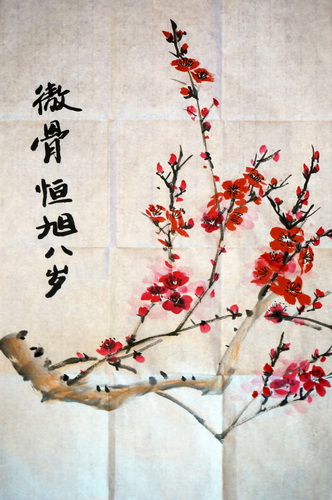 傲骨恒旭八岁